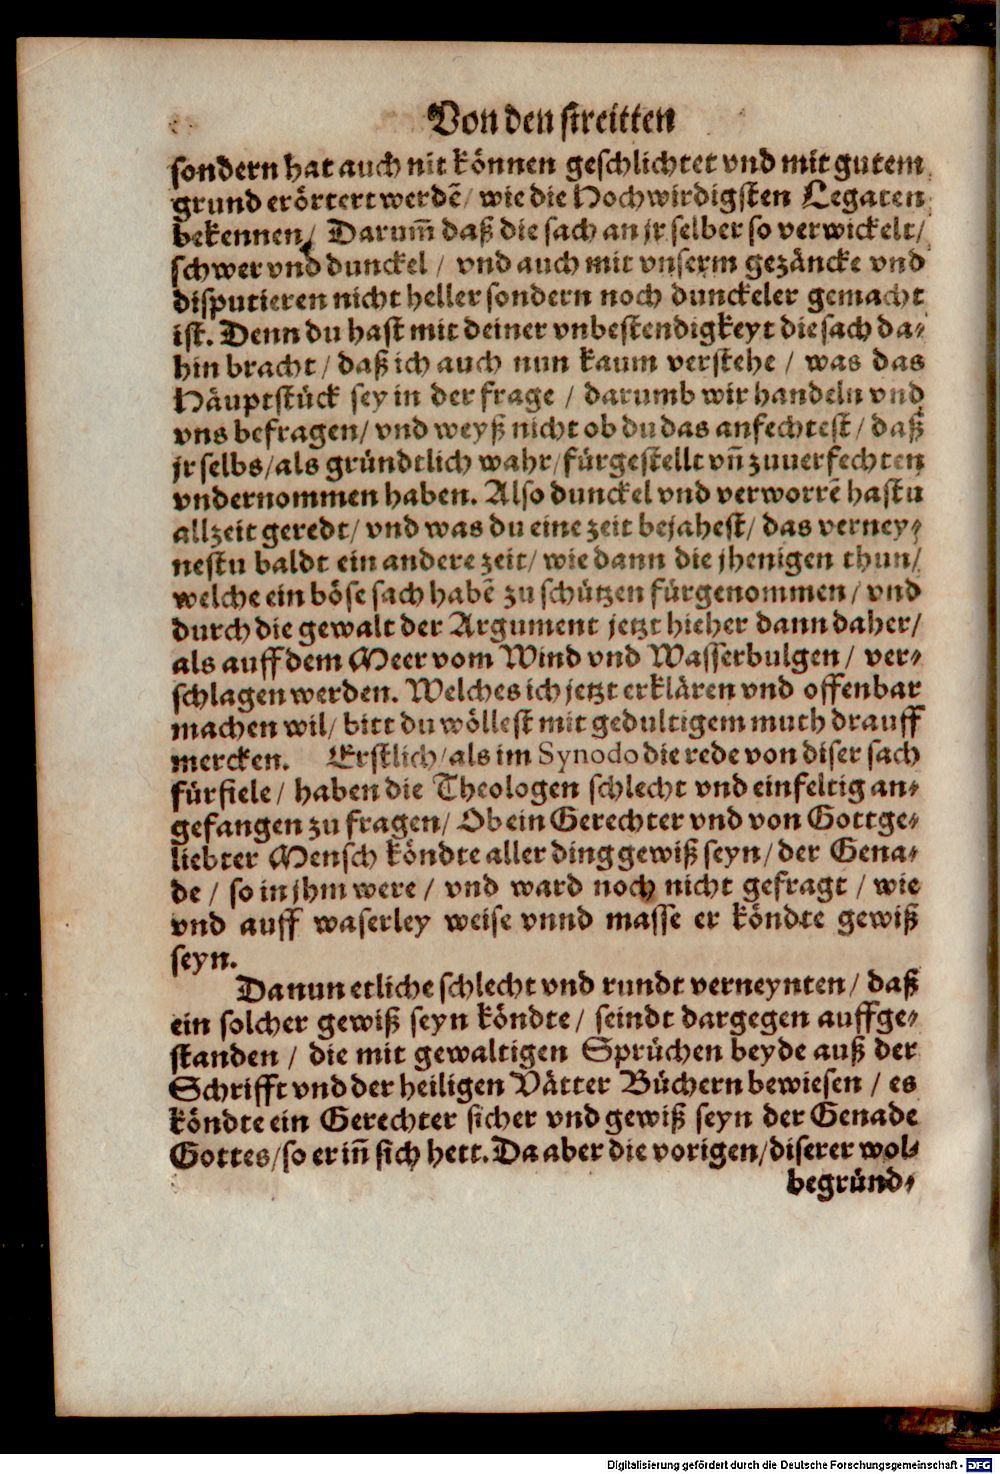 Von den streitten
sondern hat auch nit können geschlichtet vnd mit gutem
grund erörtert werdē/ wie die Hochwirdigsten Legaten
bekennen/ Darum̄ daß die sach an jr selber so verwickelt/
schwer vnd dunckel / vnd auch mit vnserm gezäncke vnd
disputieren nicht heller sondern noch dunckeler gemacht
ist. Denn du hast mit deiner vnbestendigkeyt die sach da⸗
hin bracht / daß ich auch nun kaum verstehe / was das
Häuptstück sey in der frage / darumb wir handeln vnd
vns befragen/ vnd weyß nicht ob du das anfechtest / daß
jr selbs/als gründtlich wahr/ fürgestellt vn̄ zuuerfechten
vndernommen haben. Also dunckel vnd verworrē hastu
allzeit geredt/ vnd was du eine zeit bejahest/ das verney⸗
nestu baldt ein andere zeit/ wie dann die jhenigen thun/
welche ein böse sach habē zu schützen fürgenommen/ vnd
durch die gewalt der Argument jetzt hieher dann daher/
als auff dem Meer vom Wind vnd Wasserbulgen/ ver⸗
schlagen werden. Welches ich jetzt erklären vnd offenbar
machen wil/ bitt du wöllest mit gedultigem muth drauff
mercken. Erstlich/ als im Synodo die rede von diser sach
fürfiele/ haben die Theologen schlecht vnd einfeltig an⸗
gefangen zu fragen/ Ob ein Gerechter vnd von Gott ge⸗
liebter Mensch köndte aller ding gewiß seyn/ der Gena⸗
de / so in jhm were / vnd ward noch nicht gefragt / wie
vnd auff waserley weise vnnd masse er köndte gewiß
seyn.
Da nun etliche schlecht vnd rundt verneynten/ daß
ein solcher gewiß seyn köndte/ seindt dargegen auffge⸗
standen / die mit gewaltigen Sprüchen beyde auß der
Schrifft vnd der heiligen Vätter Büchern bewiesen / es
köndte ein Gerechter sicher vnd gewiß seyn der Genade
Gottes/ so er in̄ sich hett. Da aber die vorigen/ diserer wol⸗
begründ⸗
Digitalisierung gefördert durch die Deutsche Forschungsgemeinschaft - DFG